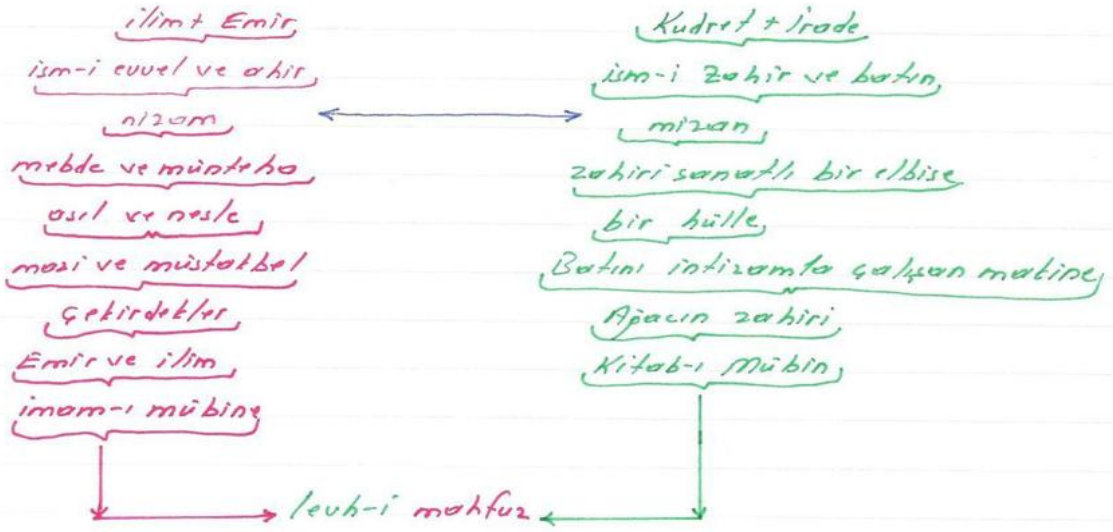 ilim + Emir
ism-i evvel ve ahir
nizam
mebde ve münteha
asıl ve nesle
mazi ve müstakbel
çekirdekler
Emir ve ilim
imam-ı mübine
Kudret + İrade
ism-i Zahir ve batın
mizan
zahiri sanatlı bir elbise
bir hülle
Batını intizamla çalışan makine
Ağacın zahiri
Kitab-ı Mübin
levh-i mahfuz